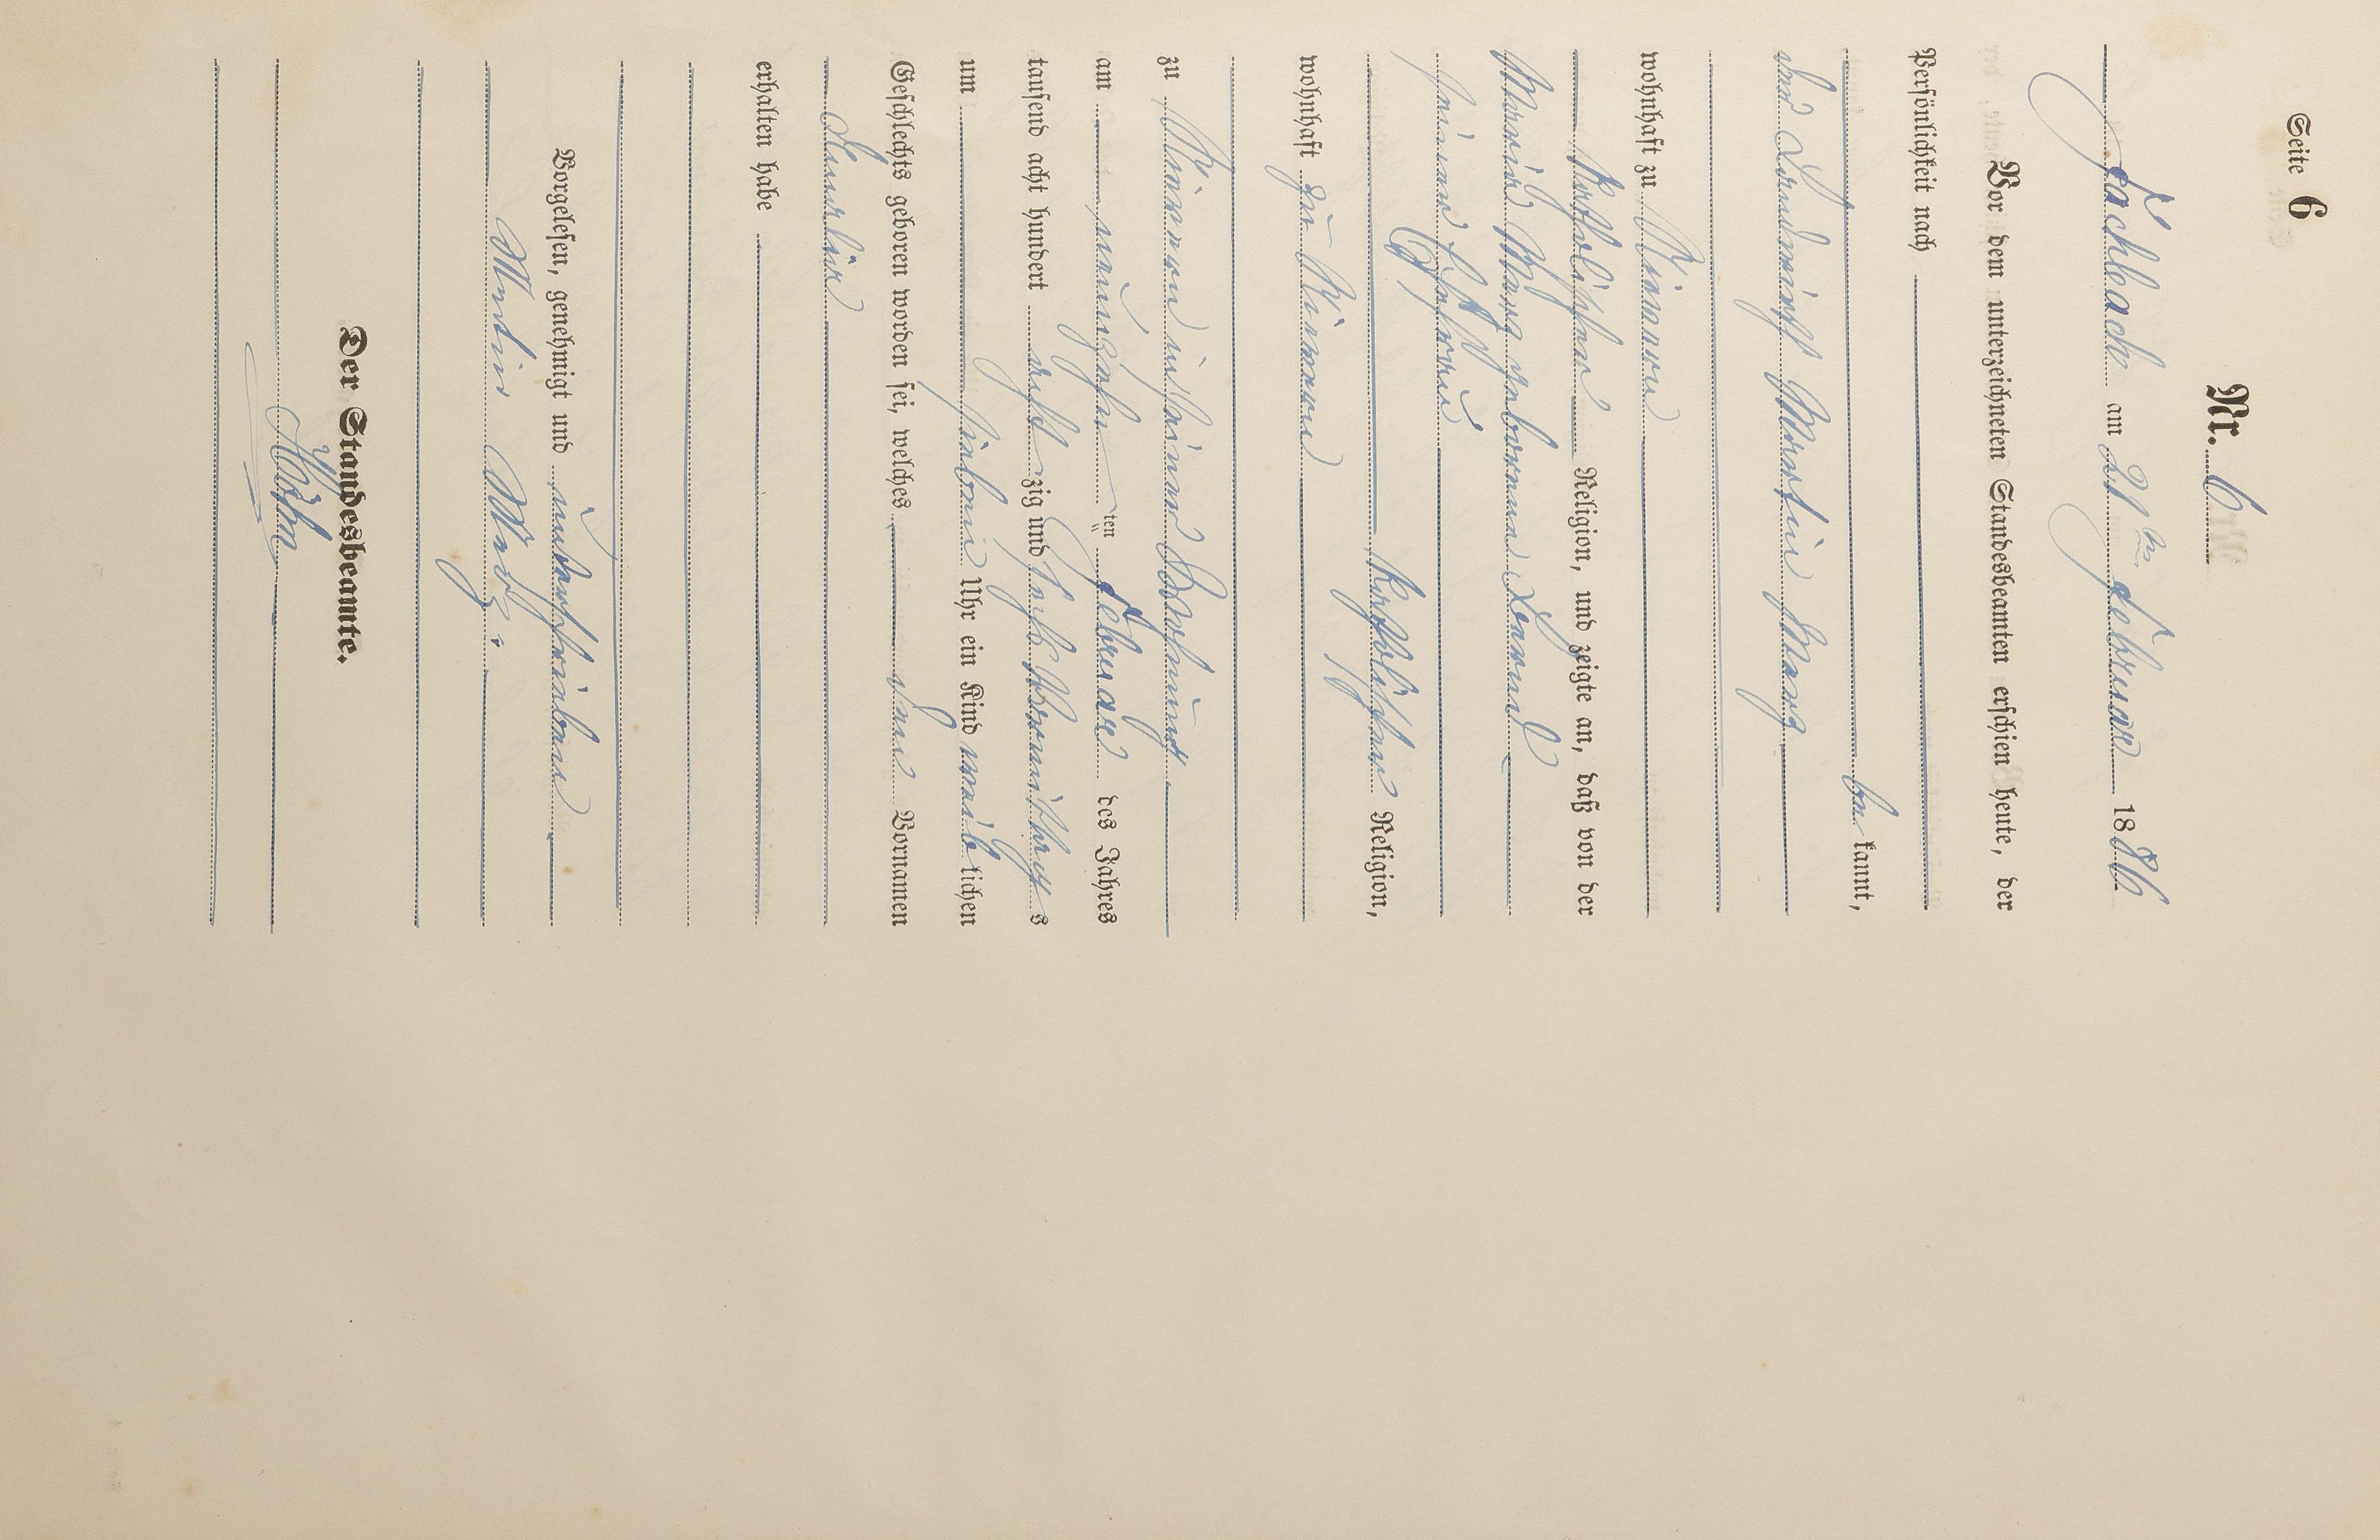 Seite 6
Nr. 6
Fachbach am 21ten Februar 1886
Vor dem unterzeichneten Standesbeamten erschien heute, der
Persönlichkeit nach
bekannt,
der Landwirth Martin Marz
wohnhaft zu
katholischer Religion, und zeigte an, daß von der
Maria Marz geborenen
seiner Ehefrau
katholischer Religion,
wohnhaft zu
zu in seiner Wohnung
am neunzehn ten Februar des Jahres
tausend acht hundert acht zig und sechs Vormittags
um sieben Uhr ein Kind weiblichen
Geschlechts geboren worden sei, welches den Vornamen
erhalten habe
Vorgelesen, genehmigt und unterschrieben
Martin
Der Standesbeamte.